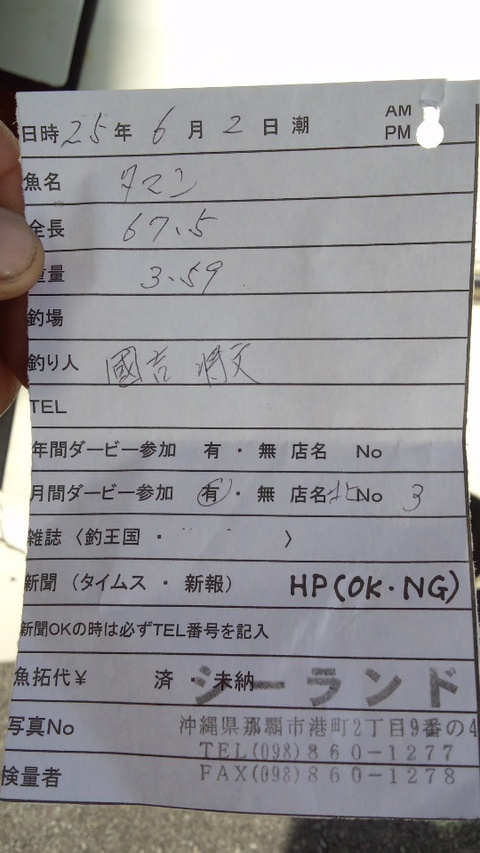 日時 25 年 6 月 2 日 潮 AM PM
魚名 タマン
全長 67.5
重量 3.59
釣場
釣り人 國吉 将文
TEL
年間ダービー参加 有 ・ 無 店名 No
月間ダービー参加 有 ・ 無 店名 北 No 3
雑誌〈釣王国 ・ 〉
新聞(タイムス ・ 新報) HP(OK・NG)
新聞OKの時は必ずTEL番号を記入
魚拓代¥ 済 ・ 未納 シーランド
写真No 沖縄県那覇市港町2丁目9番の4
TEL(098)860-1277
検量者 FAX(098)860-1278